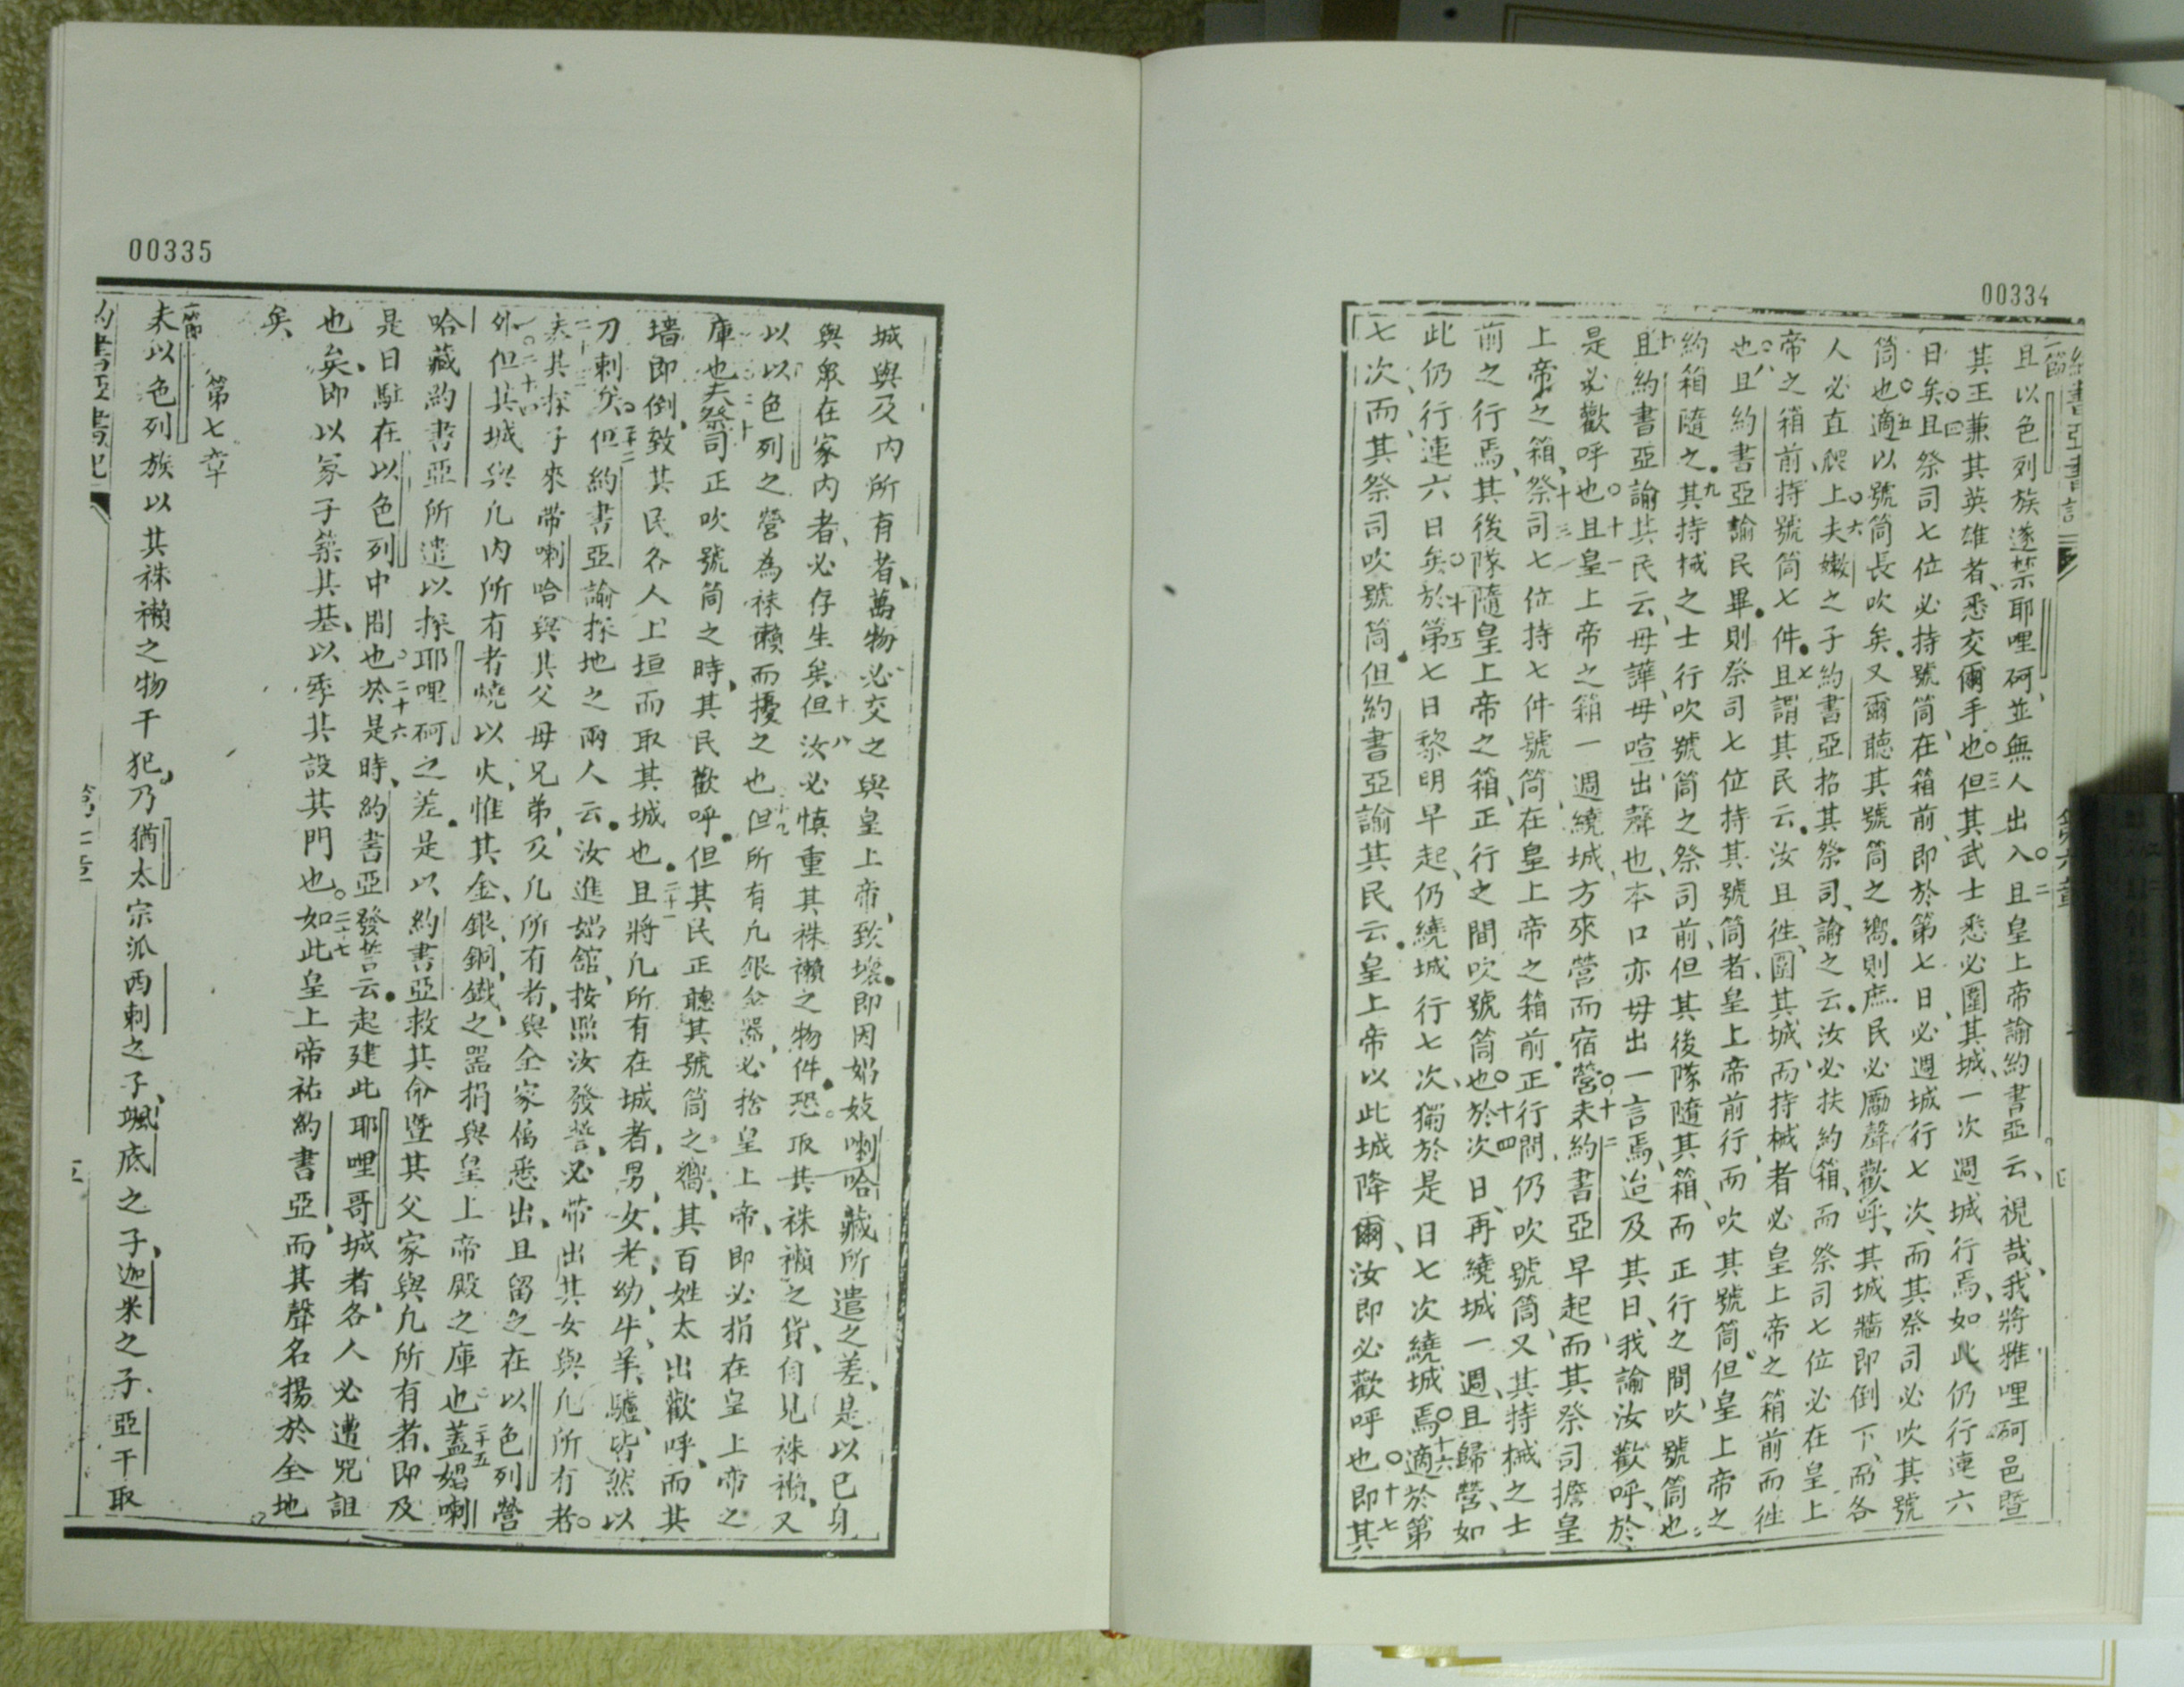 00334
約書亞書記
第六章
四
一節
且以色列族遂禁耶哩砢、並無人出入○二且皇上帝諭約書亞云、視哉、我將雅哩砢邑暨
其王兼其英雄者、悉交爾手也○三但其武士悉必圍其城、一次週城行焉、如此仍行連六
日矣○四且祭司七位必持號筒、在箱前、即於第七日、必週城行七次、而其祭司必吹其號
筒也○五適以號筒長吹矣、又爾聽其號筒之嚮、則庶民必厲聲歡呼、其城牆即倒下、而各
人必直爬上○六夫嫩之子約書亞招其祭司、諭之云、汝必扶約箱、而祭司七位必在皇上
帝之箱前持號筒七件、七且謂其民云、汝且徃、圍其城、而持械者必皇上帝之箱前而徃
也○八且約書亞諭民畢、則祭司七位持其號筒者、皇上帝前行、而吹其號筒、但皇上帝之
約箱隨之、九其持械之士行吹號筒之祭司前、但其後隊隨其箱、而正行之間、吹號筒也
十且約書亞諭其民云、毋譁、毋喧出聲也、本口亦毋出一言焉、迨及其日、我諭汝歡呼、於
是必歡呼也○十一且皇上帝之箱一週繞城、方來營而宿營○十二夫約書亞早起、而其祭司擔皇
上帝之箱、十三祭司七位持七件號筒在皇上帝之箱前、正行間、仍吹號筒、又其持械之士
前之行焉、其後隊隨皇上帝之箱、正行之間吹號筒也○十四於次日、再繞城一週、且歸營、如
此仍行連六日矣○十五於第七日黎明早起、仍繞城行七次、獨於是日七次繞城焉○十六適於第
七次、而其祭司吹號筒、但約書亞諭其民云、皇上帝以此城降爾、汝即必歡呼也○十七即其
00335
城與及內所有者、萬物必交之與皇上帝、致壞、即因娼妓喇哈藏所遣之差、是以已身
與眾在家內者、必存生矣、十八但汝必慎重其袾襰之物件、恐取其袾襰之貨、自見袾襰、又
以以色列之營為袾襰而擾之也、十九但所有凡銀金器、必捨皇上帝、即必捐在皇上帝之
庫也、二十夫祭司正吹號筒之時、其民歡呼、但其民正聽其號筒之嚮、其百姓太出歡呼、而其
墻即倒、致其民各人上垣而取其城也、二十一且將凡所有在城者、男、女、老、幼、牛、羊、驢、皆然以
刀剌矣○二十二但約書亞諭探地之兩人云、汝進娼舘、按照汝發誓、必帶出其女與凡所有者○
二十三夫其探子來帶喇哈與其父母兄弟、及凡所有者、與全家偹悉出、且留之在以色列營
外○二十四但其城與凡內所有者燒以火、惟其金、銀、銅、鐵、之器捐與皇上帝殿之庫也、二十五蓋娼喇
哈藏約書亞所遣以探耶哩砢之差、是以約書亞救其命暨其父家與凡所有者、即及
是日駐在以色列中間也、二十六於是時、約書亞發誓云、起建此耶哩哥城者、各人必遭咒詛
也矣、即以冢子築其基、以季其設其門也○二十七如此皇上帝祐約書亞、而其聲名揚於全地
矣
第七章
一節
夫以色列族以其袾襰之物干犯、乃猶太宗派西剌之子、颯底之子、迦米之子、亞干取
約書亞書記
第七章
五